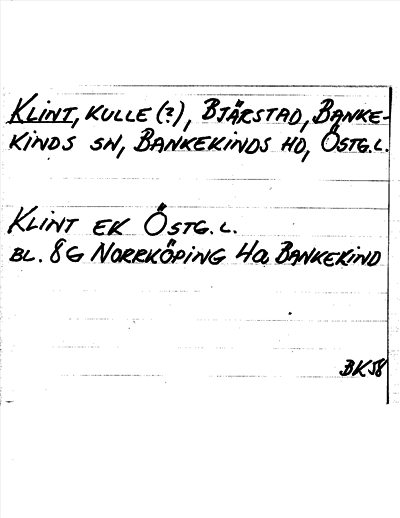 KLINT, KULLE (?), BJÄRSTAD, BANKE-
KINDS SN, BANKEKINDS HD, ÖSTG.L.
KLINT EK ÖSTG.L.
BL. 8G NORRKÖPING 4a BANKEKIND
BK58